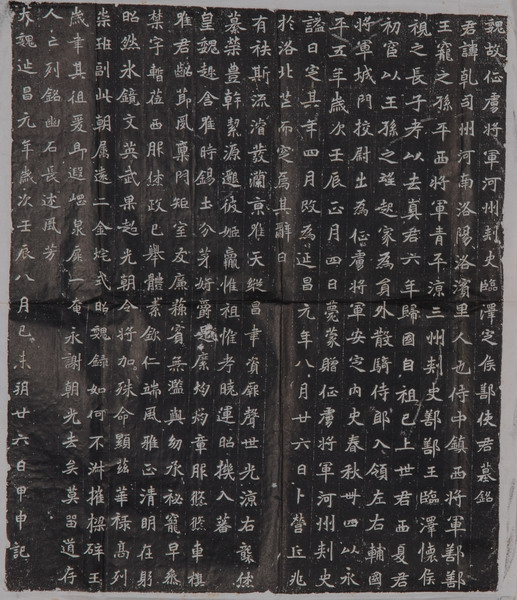 魏故征虜將軍河州刺史臨澤定侯鄯使君墓銘
君諱乾司州河南洛陽洛濱里人也侍中鎮西將軍鄯鄯
王寵之孫平西將軍青平涼三州刺史鄯鄯王臨澤懷侯
視之長子考以去真君六年歸國自祖已上世君西夏君
初宦以王孫之望起家為員外散騎侍郎入領左右輔國
將軍城門校尉出為征虜將軍安定內史春秋卌四以永
平五年歲次壬辰正月四日薨蒙贈征虜將軍河州刺史
謚曰定其年四月改為延昌元年八月廿六日卜營丘兆
於洛北芒而窆焉其辭曰
有秩斯流濬發蘭京天縱昌聿資厥聲世光涼右襲休
纂榮豊幹絜源邈彼姬嬴惟祖惟考曉運昭機入蕃
皇魏趍舍唯時錫土分茅好爵是縻灼灼章服悠悠車旗
唯君韶節夙稟門矩室友廉蘇賓無濫與幼承秘寵早參
禁宇暫莅西服休政已舉體素欽仁端風雅正清明在躬
昭然氷鏡文英武果超光朝令將加殊命顯茲華祿高列
崇班副此朝屬遠二金炉式昭魏錄如何不淋摧樑碎玉
歲聿其徂爰即遐崿泉扉一奄永謝朝光去矣莫留道存
人亡列銘幽石長述風芳
大魏延昌元年歲次壬辰八月己未朔廿六日甲申記